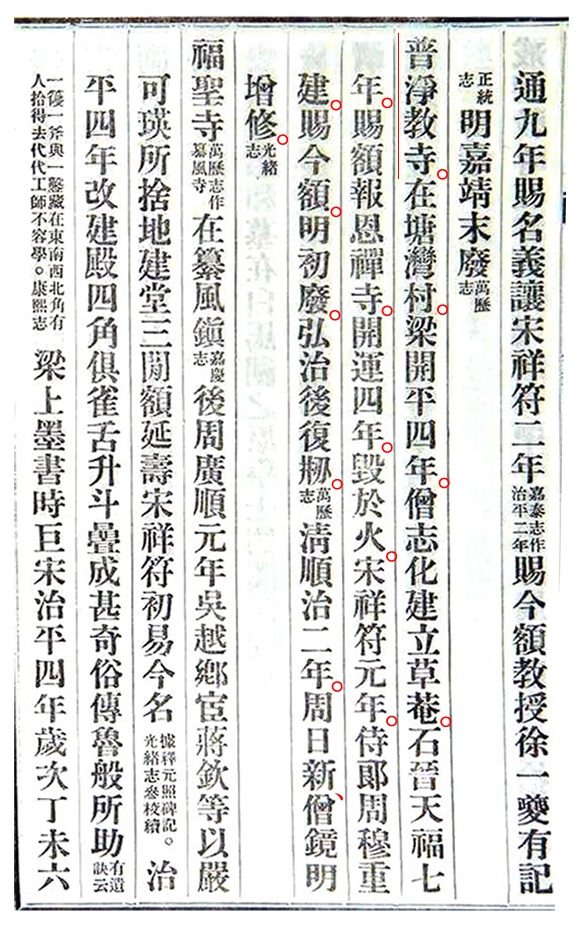 通九年賜名義讓宋祥符二年嘉泰志作治平二年賜今額教授徐一夔有記
正統志明嘉靖末廢萬歷志
普淨教寺。在塘灣村。梁開平四年。僧志化建立草菴。石晉天福七
年。賜額報恩禪寺。開運四年。毀於火。宋祥符元年。侍郎周穆重
建。賜今額。明初廢。弘治後復剏。萬歷志清順治二年。周日新、僧鏡明
增修。光緒志
福聖寺萬歷志作纂風寺在纂風鎮嘉慶志後周廣順元年吳越鄉宦蔣欽等以嚴
可瑛所捨地建堂三間額延壽宋祥符初易今名據釋元照碑記。光緒志參校續治
平四年改建殿四角俱雀舌升斗疊成甚奇俗傳魯般所助有遺訣云
一優一斧與一鑿藏在東南西北角有人拾得去代代工師不容學。康熙志梁上墨書時巨宋治平四年歲次丁未六